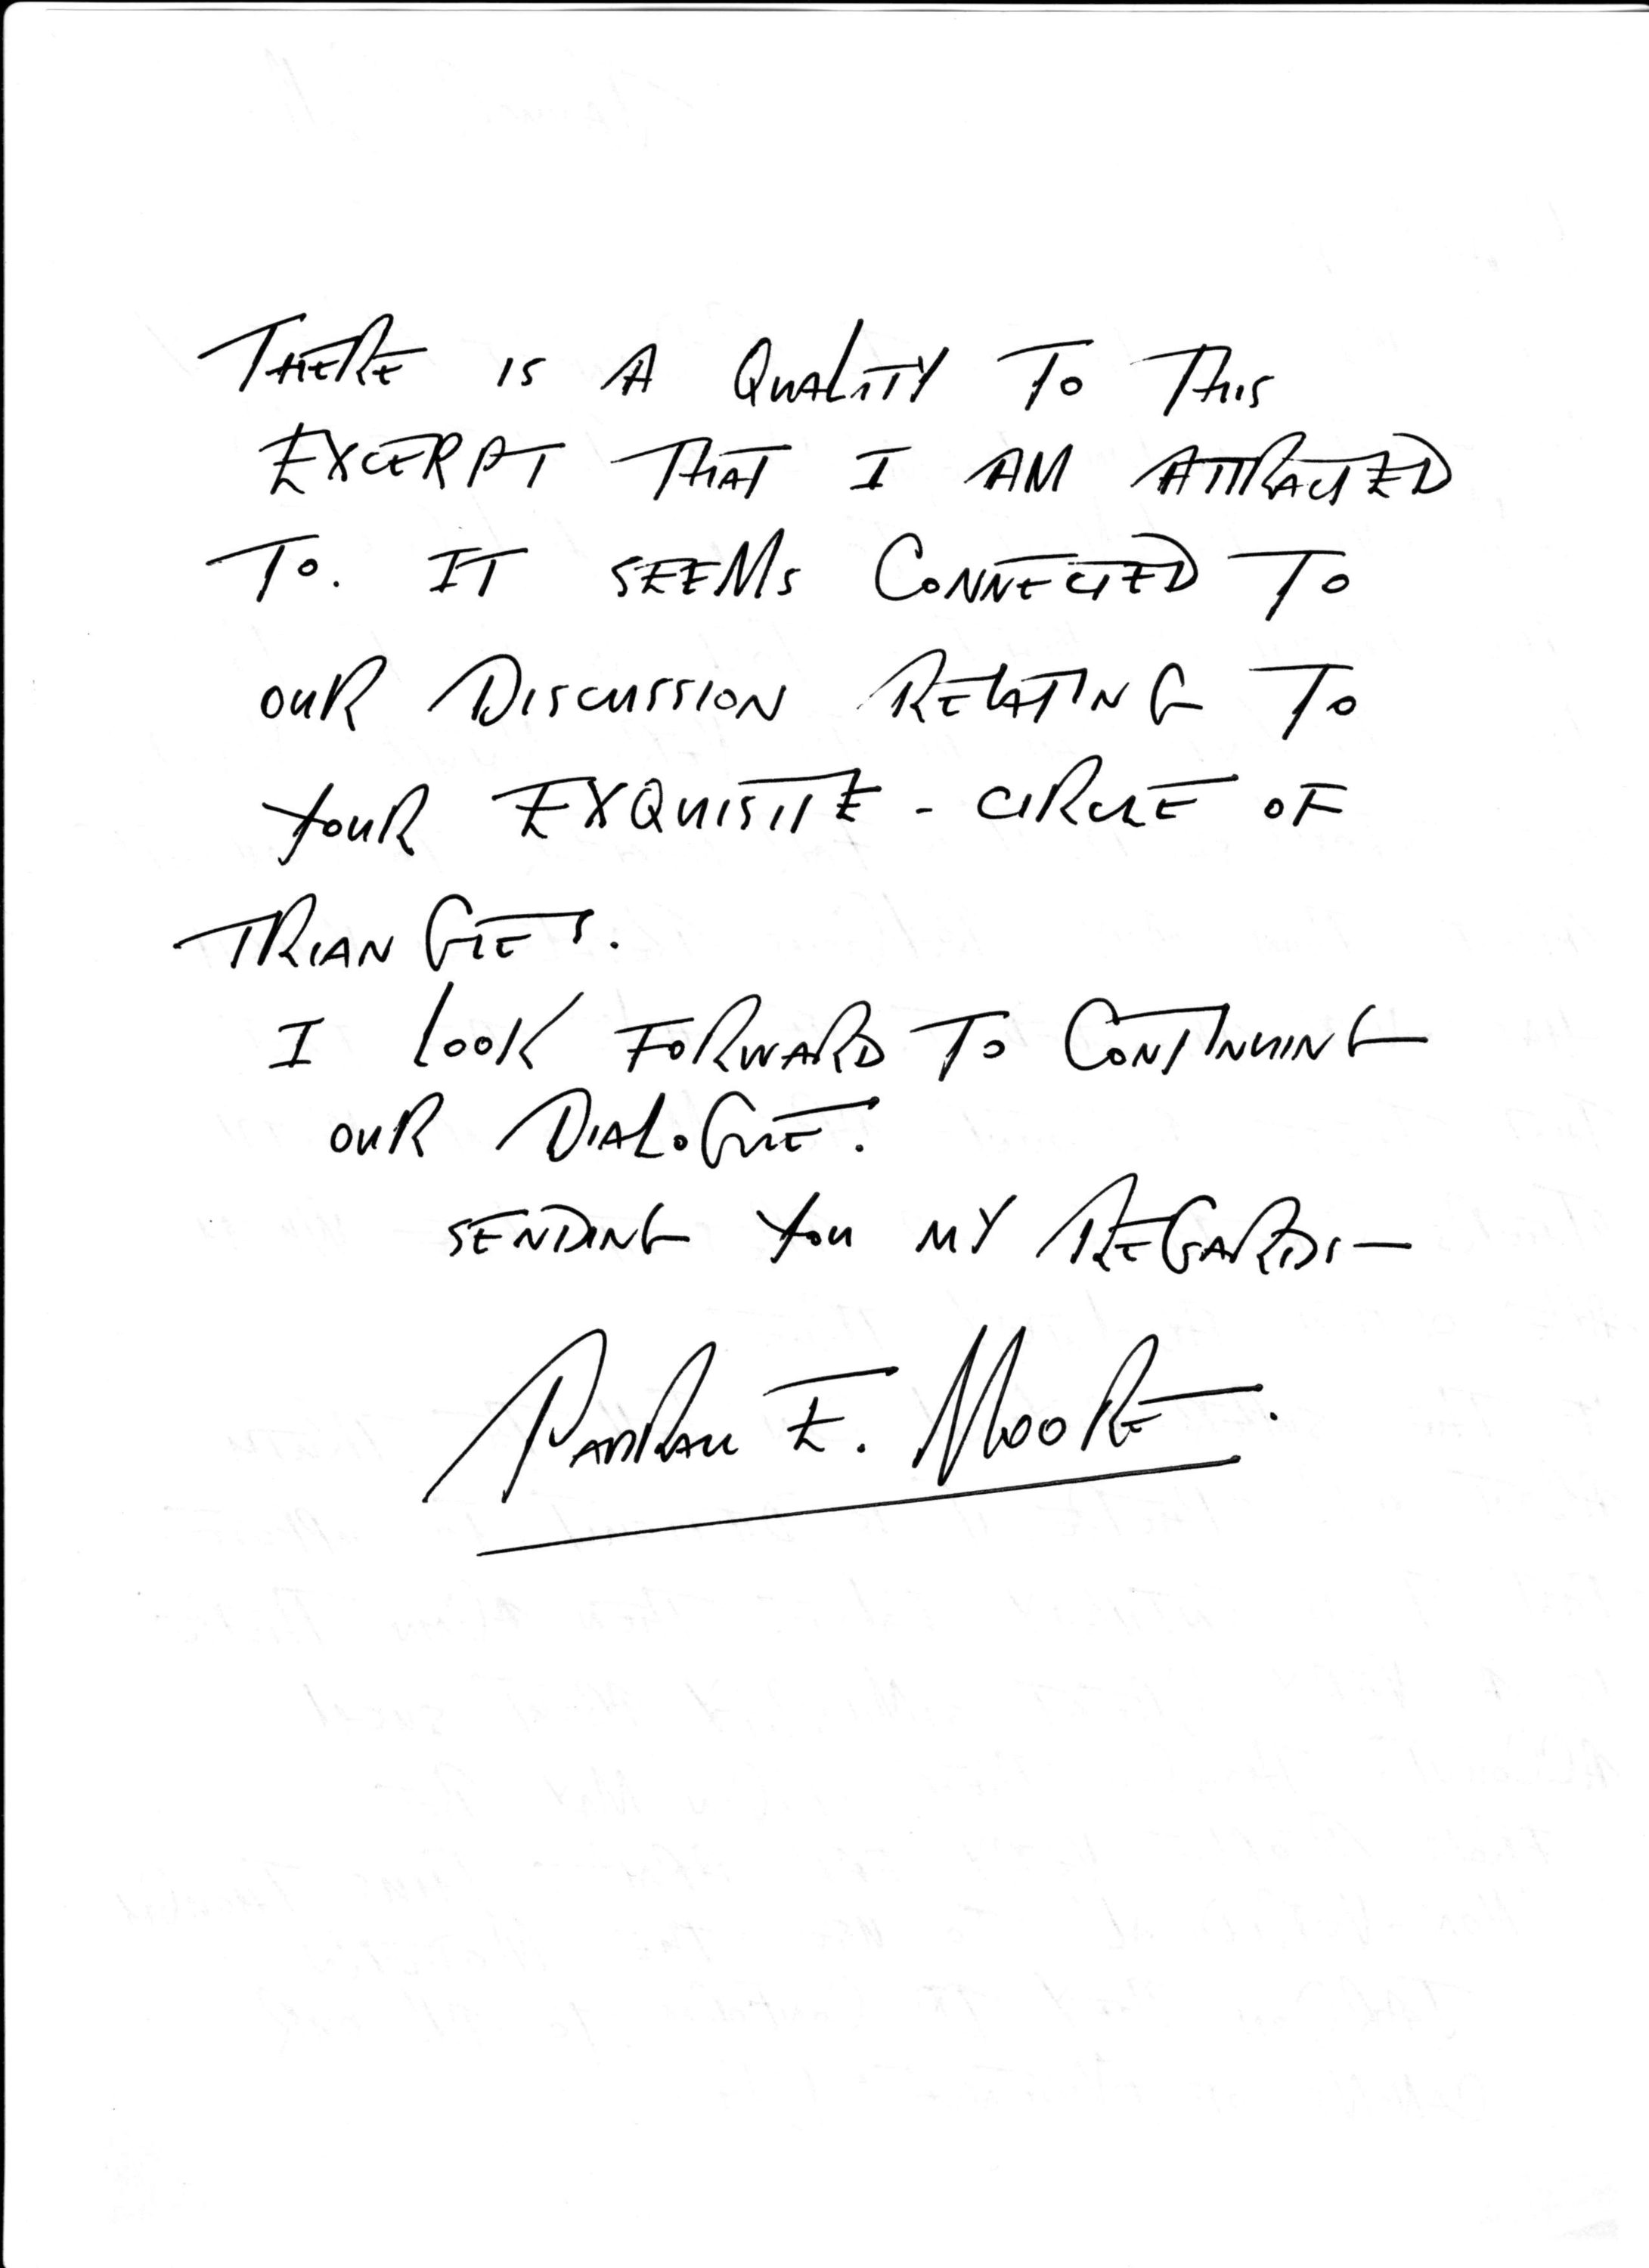 THERE IS A QUALITY TO THIS
EXCERPT THAT I AM ATTRACTED
TO. IT SEEMS CONNECTED TO
OUR DISCUSSION RELATING TO
YOUR EXQUISITE - CIRCLE OF
TRIANGLES.
I LOOK FORWARD TO CONTINUING
OUR DIALOGUE.
SENDING YOU MY REGARDS—
E. MOORE.